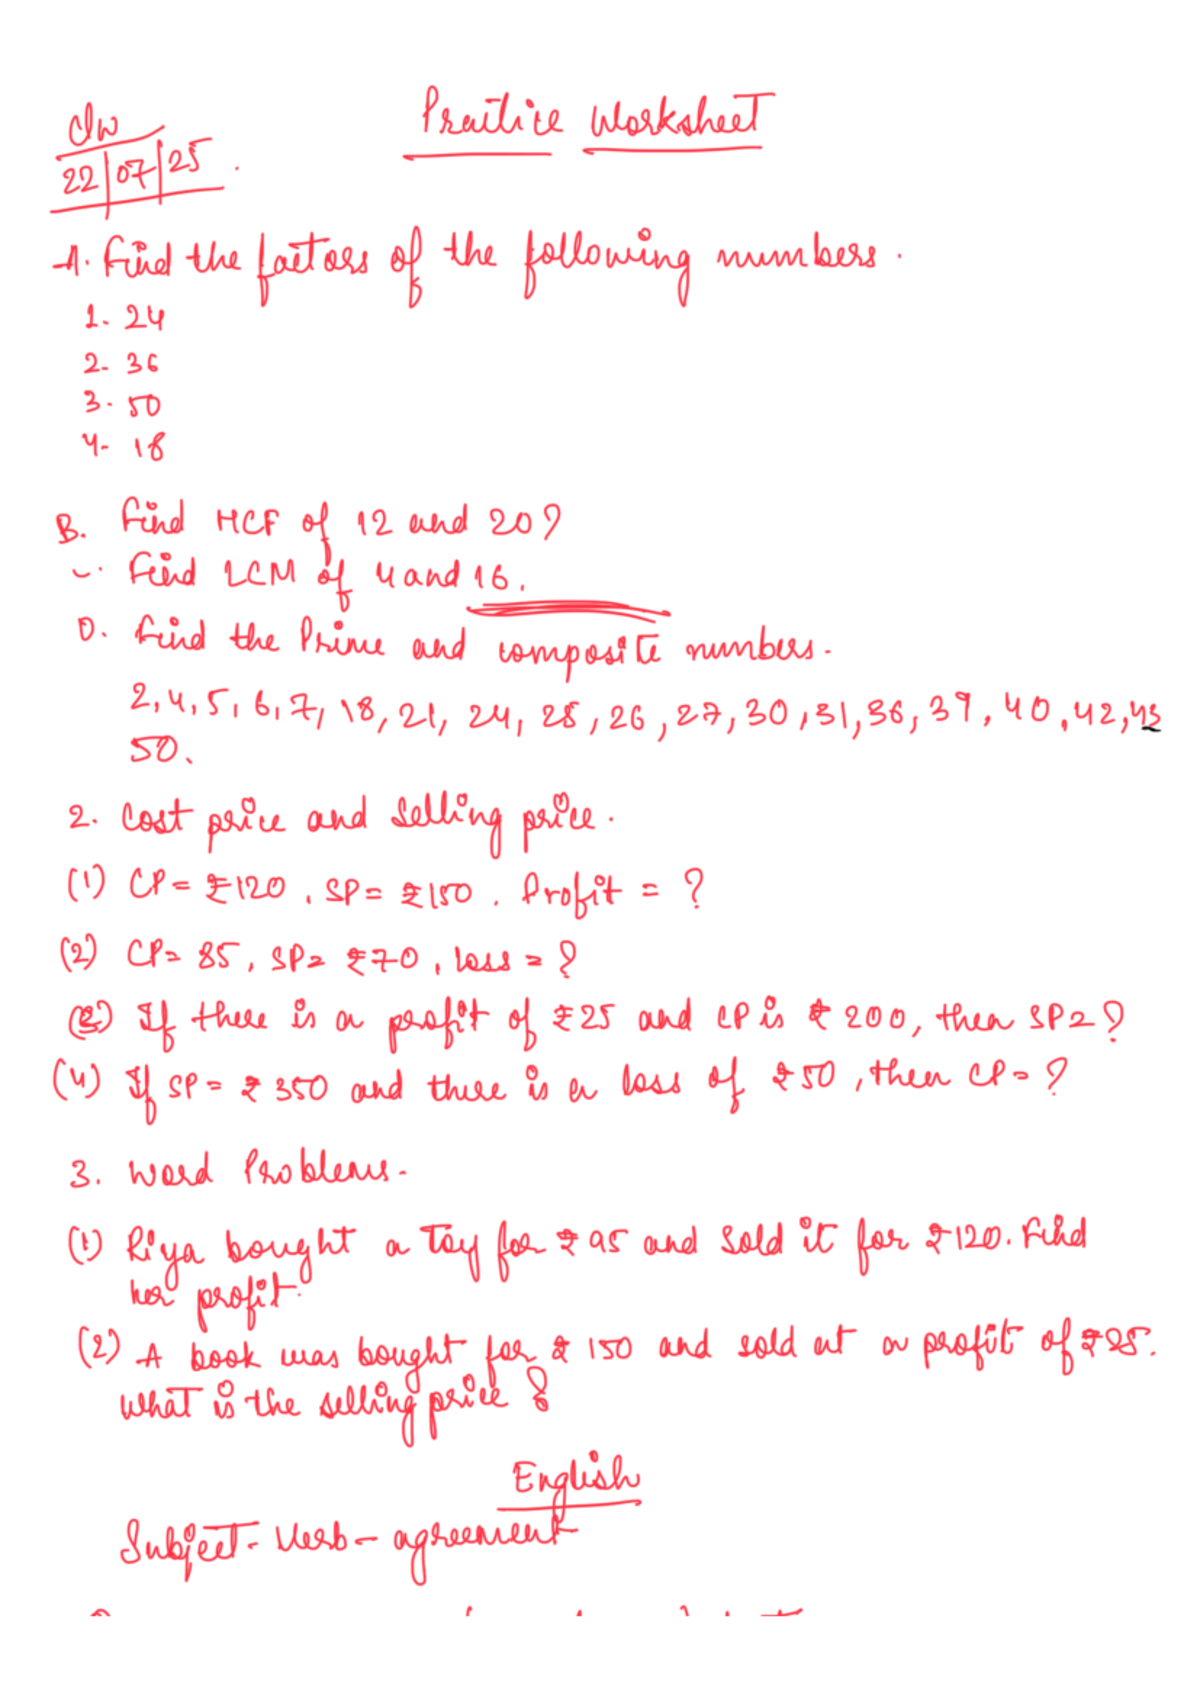 Practice Worksheet
CW
22/07/25.
A. Find the factors of the following numbers.
1. 24
2. 36
3. 50
4. 18
B. Find HCF of 12 and 20?
C. Find LCM of 4 and 16.
D. Find the Prime and composite numbers.
2, 4, 5, 6, 7, 18, 21, 24, 25, 26, 27, 30, 31, 36, 39, 40, 42, 43
50.
2. Cost price and Selling price.
(1) CP = ₹120, SP = ₹150. Profit = ?
(2) CP = 85, SP = ₹70, loss = ?
(3) If there is a profit of ₹25 and CP is ₹200, then SP = ?
(4) If SP = ₹350 and there is a loss of ₹50, then CP = ?
3. Word Problems.
(1) Riya bought a Toy for ₹95 and sold it for ₹120. Find
her profit.
(2) A book was bought for ₹150 and sold at a profit of ₹25.
What is the selling price?
English
Subject-Verb-agreement